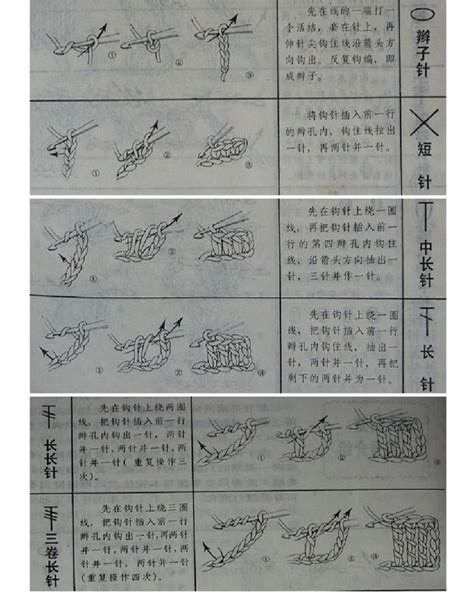 先在线的一端打一
个活结，套在针上，再
伸针尖钩住线沿箭头方
向钩出。反复钩编，即
成辫子。
辫子针
① ② ③
将钩针插入前一行
的辫孔内，钩住线拉出
一针，再两针并一针。
短针
① ② ③
先在钩针上绕一圈
线，再把钩针插入前一
行的第四辫孔内钩住
线，沿箭头方向抽出一
针，三针并作一针。
中长针
① ② ③
先在钩针上绕一圈
线，把钩针插入前一行
辫孔内钩住线，抽出一
针，两针并一针，再把
剩下的两针并为一针。
长针
① ② ③
长长针
先在钩针上绕两圈
线，把钩针插入前一行
辫孔内钩出一针，两针
并一针，两针并一针，两
针并一针（重复操作三
次）。
① ② ③
三卷长针
先在钩针上绕三圈
线，把钩针插入前一行
辫孔内钩出一针，再两针
并一针，两针并一针，两
针并一针，两针并一针
（重复操作四次）。
① ② ③